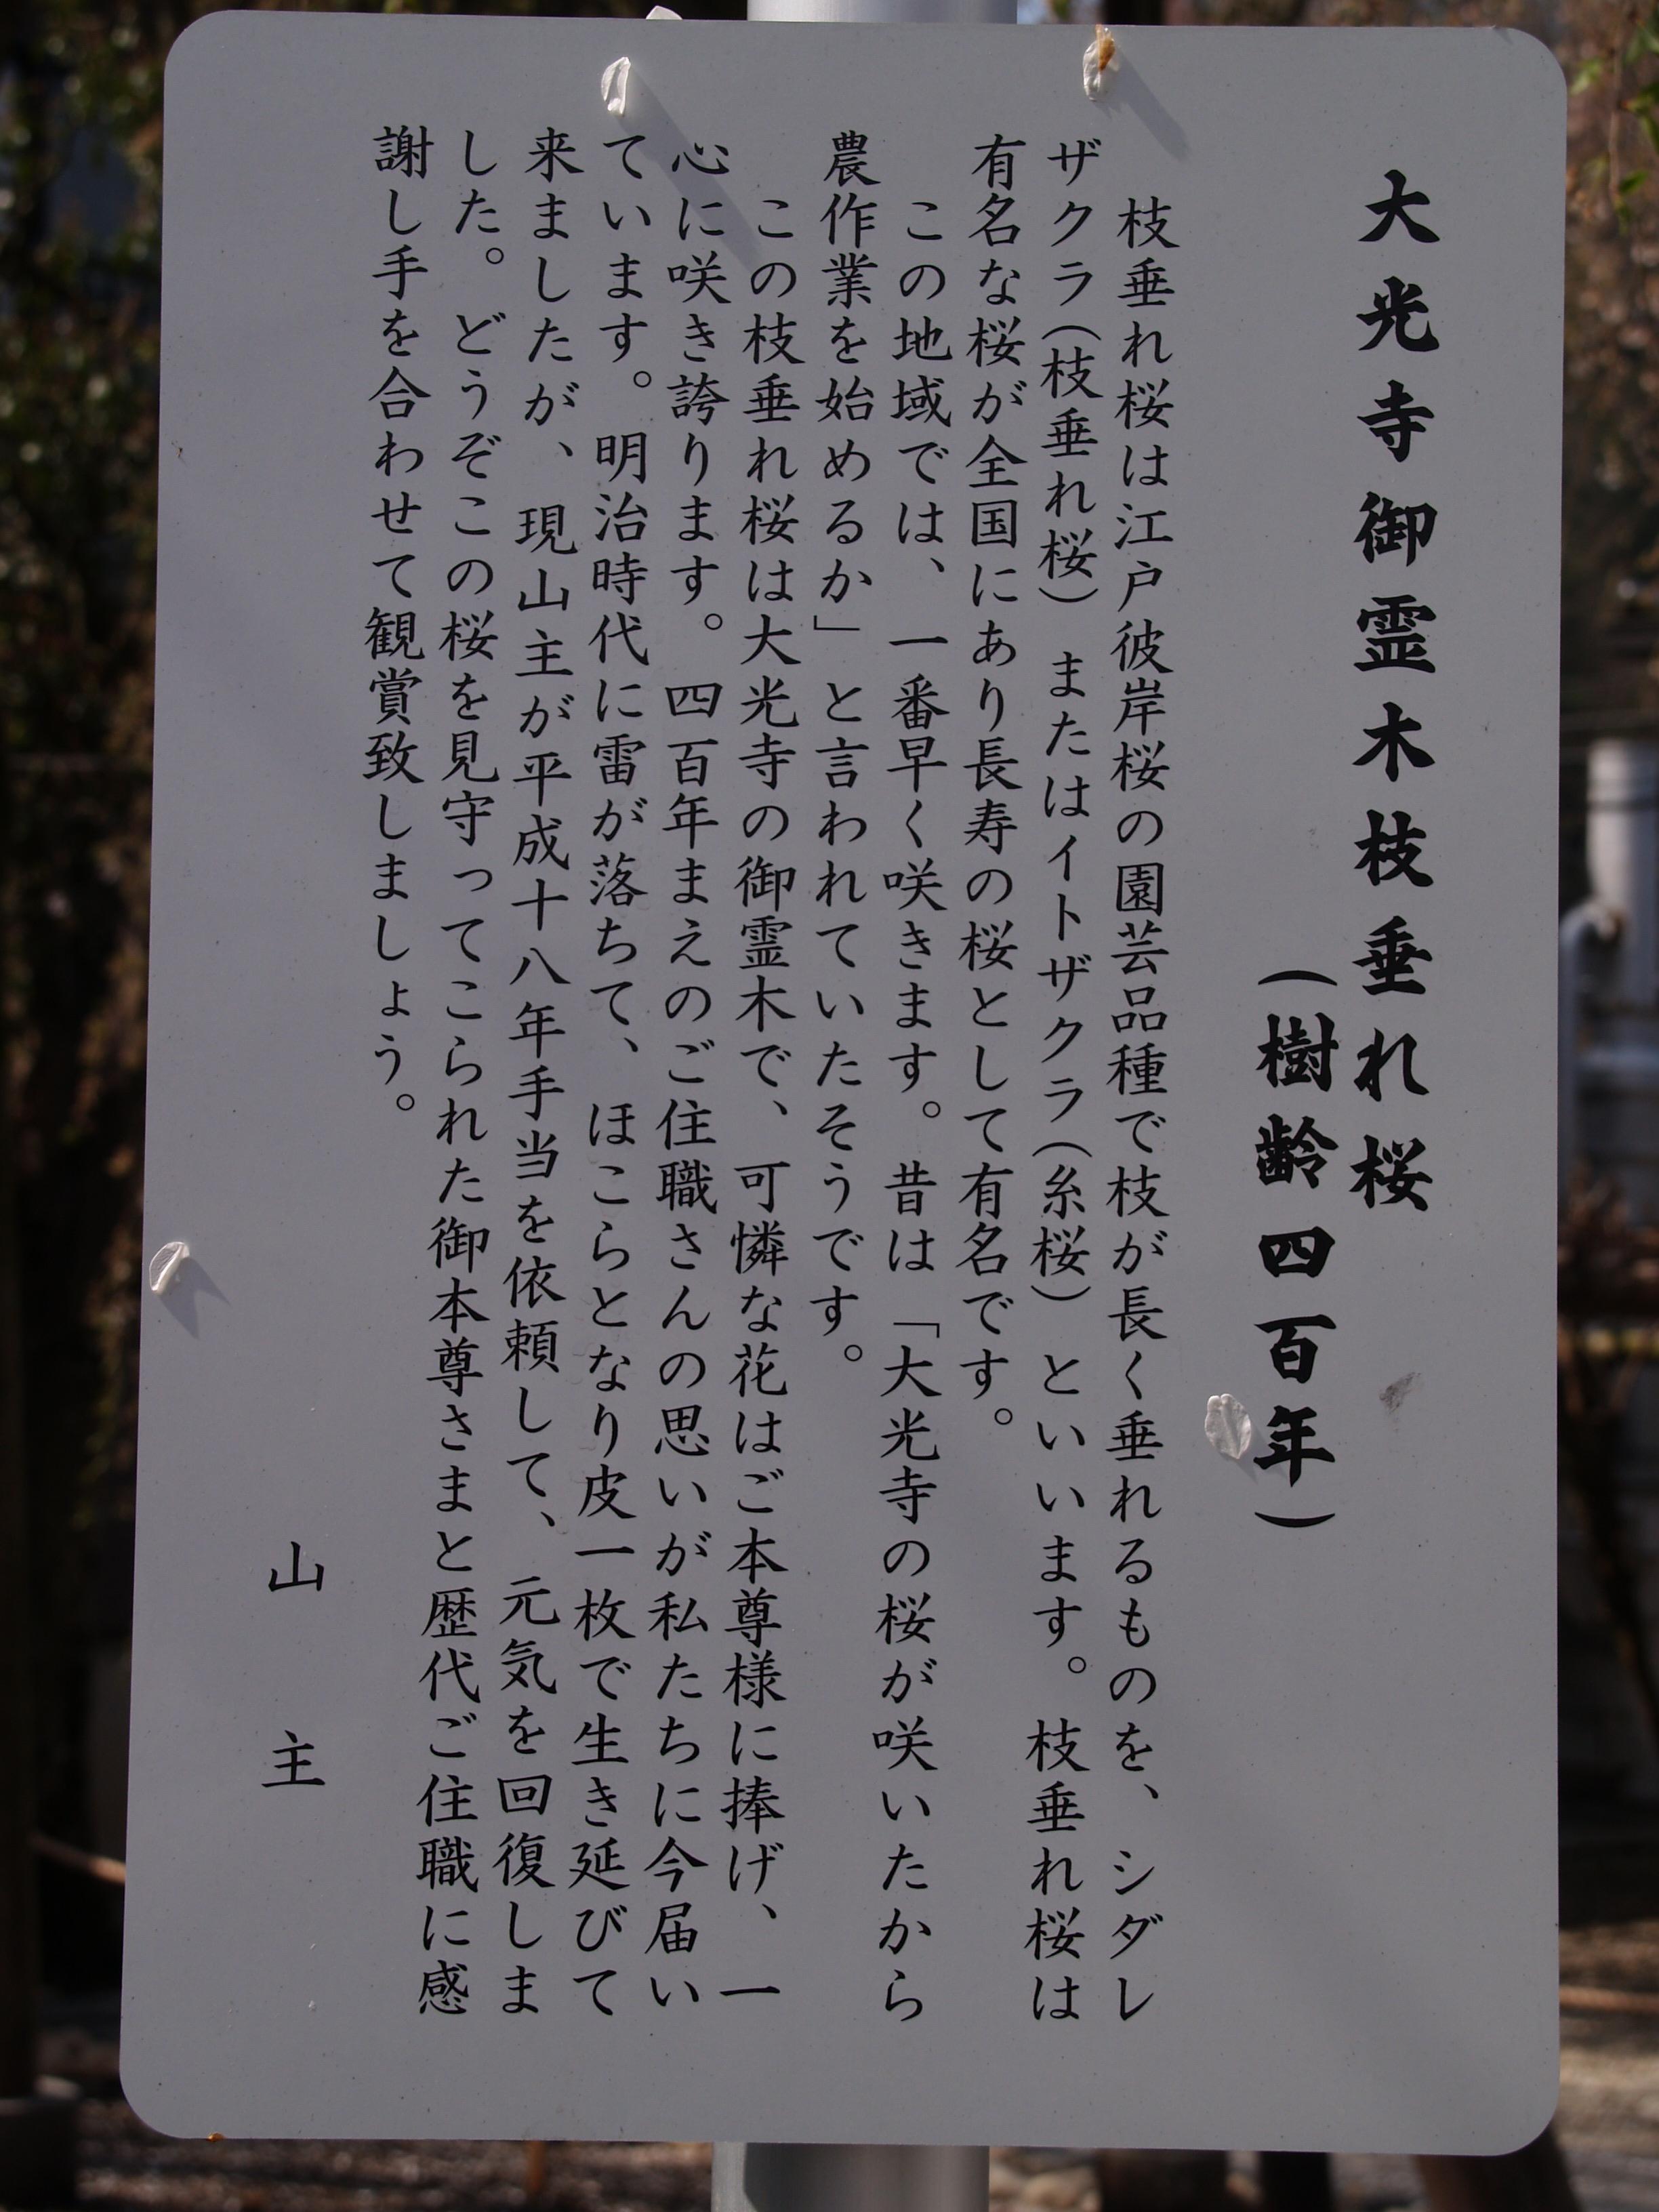 大光寺御霊木枝垂れ桜
（樹齢四百年）
枝垂れ桜は江戸彼岸桜の園芸品種で枝が長く垂れるものを、シダレ
ザクラ（枝垂れ桜）またはイトザクラ（糸桜）といいます。枝垂れ桜は
有名な桜が全国にあり長寿の桜として有名です。
この地域では、一番早く咲きます。昔は「大光寺の桜が咲いたから
農作業を始めるか」と言われていたそうです。
この枝垂れ桜は大光寺の御霊木で、可憐な花はご本尊様に捧げ、一
心に咲き誇ります。四百年まえのご住職さんの思いが私たちに今届い
ています。明治時代に雷が落ちて、ほこらとなり皮一枚で生き延びて
来ましたが、現山主が平成十八年手当を依頼して、元気を回復しま
した。どうぞこの桜を見守ってこられた御本尊さまと歴代ご住職に感
謝し手を合わせて観賞致しましょう。
山主